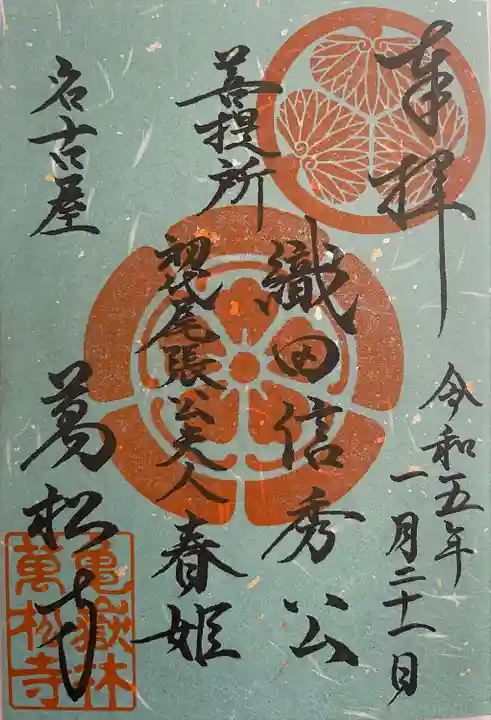 奉拝
令和五年
一月二十一日
織田信秀公
菩提所
初代尾張公夫人春姫
名古屋
萬松寺
亀嶽林
萬松寺